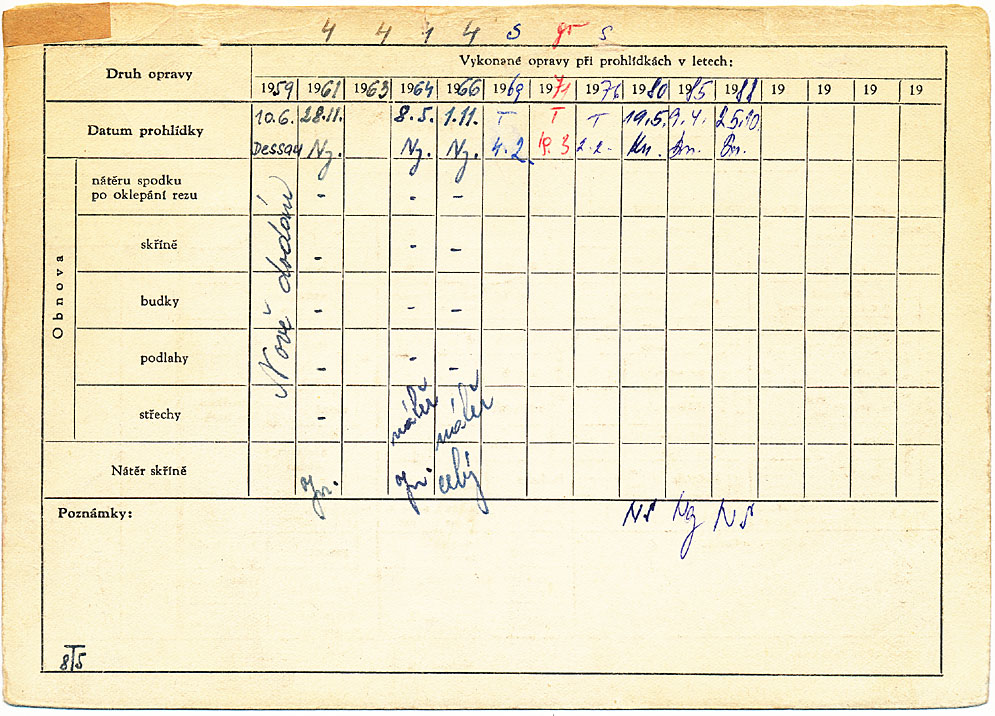 4 4 4 4 S gr S
Druh opravy
Vykonané opravy při prohlídkách v letech:
1959 1961 1963 1964 1966 1969 1971 1976 1980 1985 1988 19 19 19 19
Datum prohlídky
10.6. 28.11. 8.5. 1.11. T T T 19.5. 9.4. 25.10.
Dessau Ny. Ny. Ny. 4.2. 19.3 2.2. Kn. Bn. Bn.
Obnova
nátěru spodku
po oklepání rezu
- - -
skříně
- - -
budky
- - -
podlahy
- - -
střechy
-
Nově dodán
nátěr nátěr
celý
Nátěr skříně
Poznámky:
NS Ng NS
8T5